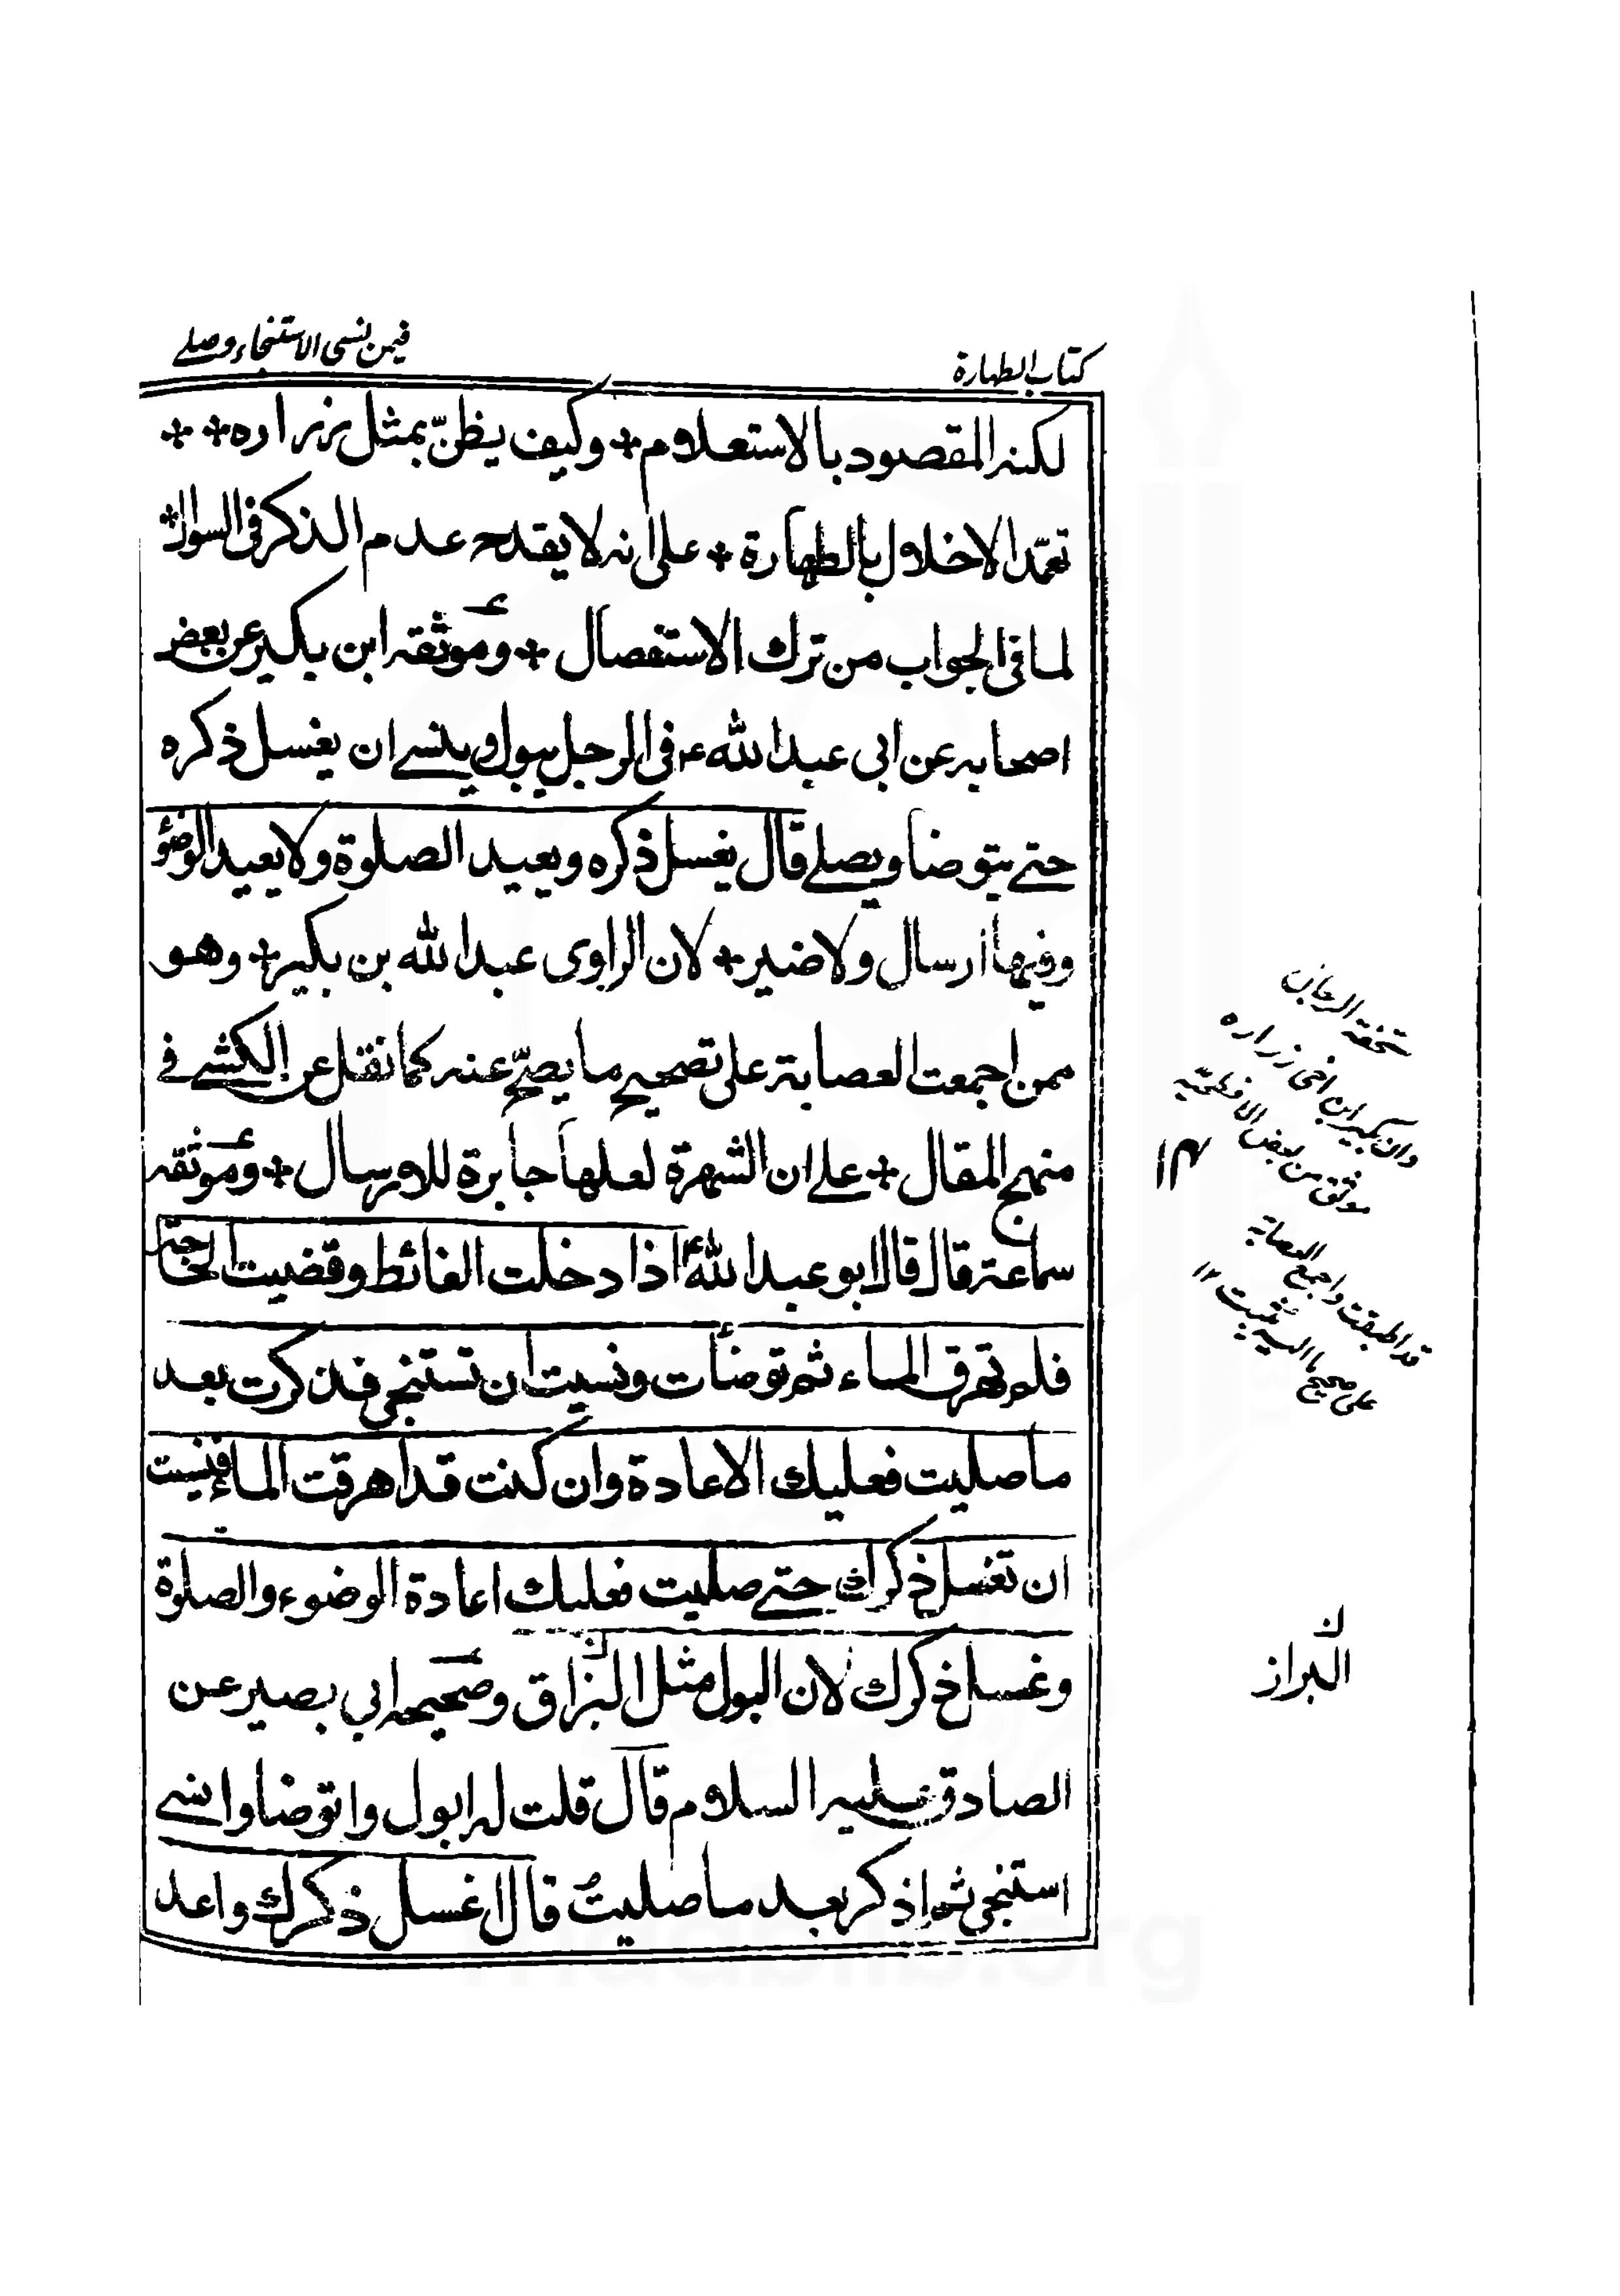 كتاب الطهارة
فيمن نسى الاستنجاء وصلے
لكنه المقصود بالاستعلام * وكيف يظنّ بمثل زراره * *
تعمّد الاخلال بالطهارة * على انه لا يقدح عدم الذكر فى السوال *
لما فى الجواب من ترك الاستفصال * وموثقه ابن بكير عن بعض
اصحابه عن ابي عبد الله ع فى الرجل يبول وينسے ان يغسل ذكره
حتے يتوضا ويصلے قال يغسل ذكره ويعيد الصلوة ولا يعيد الوضوٴ
وفيها ارسال ولا ضير * لان الراوى عبد الله بن بكير * وهو
ممن اجمعت العصابة على تصحيح ما يصحّ عنه كما نقل عن الكشے فے
منهج المقال * علے ان الشهرة لعلها جابرة للارسال * وموثقه
سماعة قال قال ابو عبد الله ع اذا دخلت الغائط وقضيت الحاجة
فلم تهرق الماء ثم توضأت ونسيت ان تستنجي فذكرت بعد
ما صليت فعليك الاعادة وان كنت قد اهرقت الماء فنسيت
ان تغسل ذكرك حتے صليت فعليك اعادة الوضوء والصلوة
وغسل ذكرك لان البول مثل البزاق وصحيحه ابي بصير عن
الصادق عليه السلام قال قلت له ابول واتوضا وانسے
استنجي ثم اذكر بعد ما صليت قال اغسل ذكرك واعد
وان بكير ابن اخى زراره
موثق من بعض الافطحيّه
قد اطبقت واجمع العصابه
على صحيح ما اليه ۱۲
ن
البراز